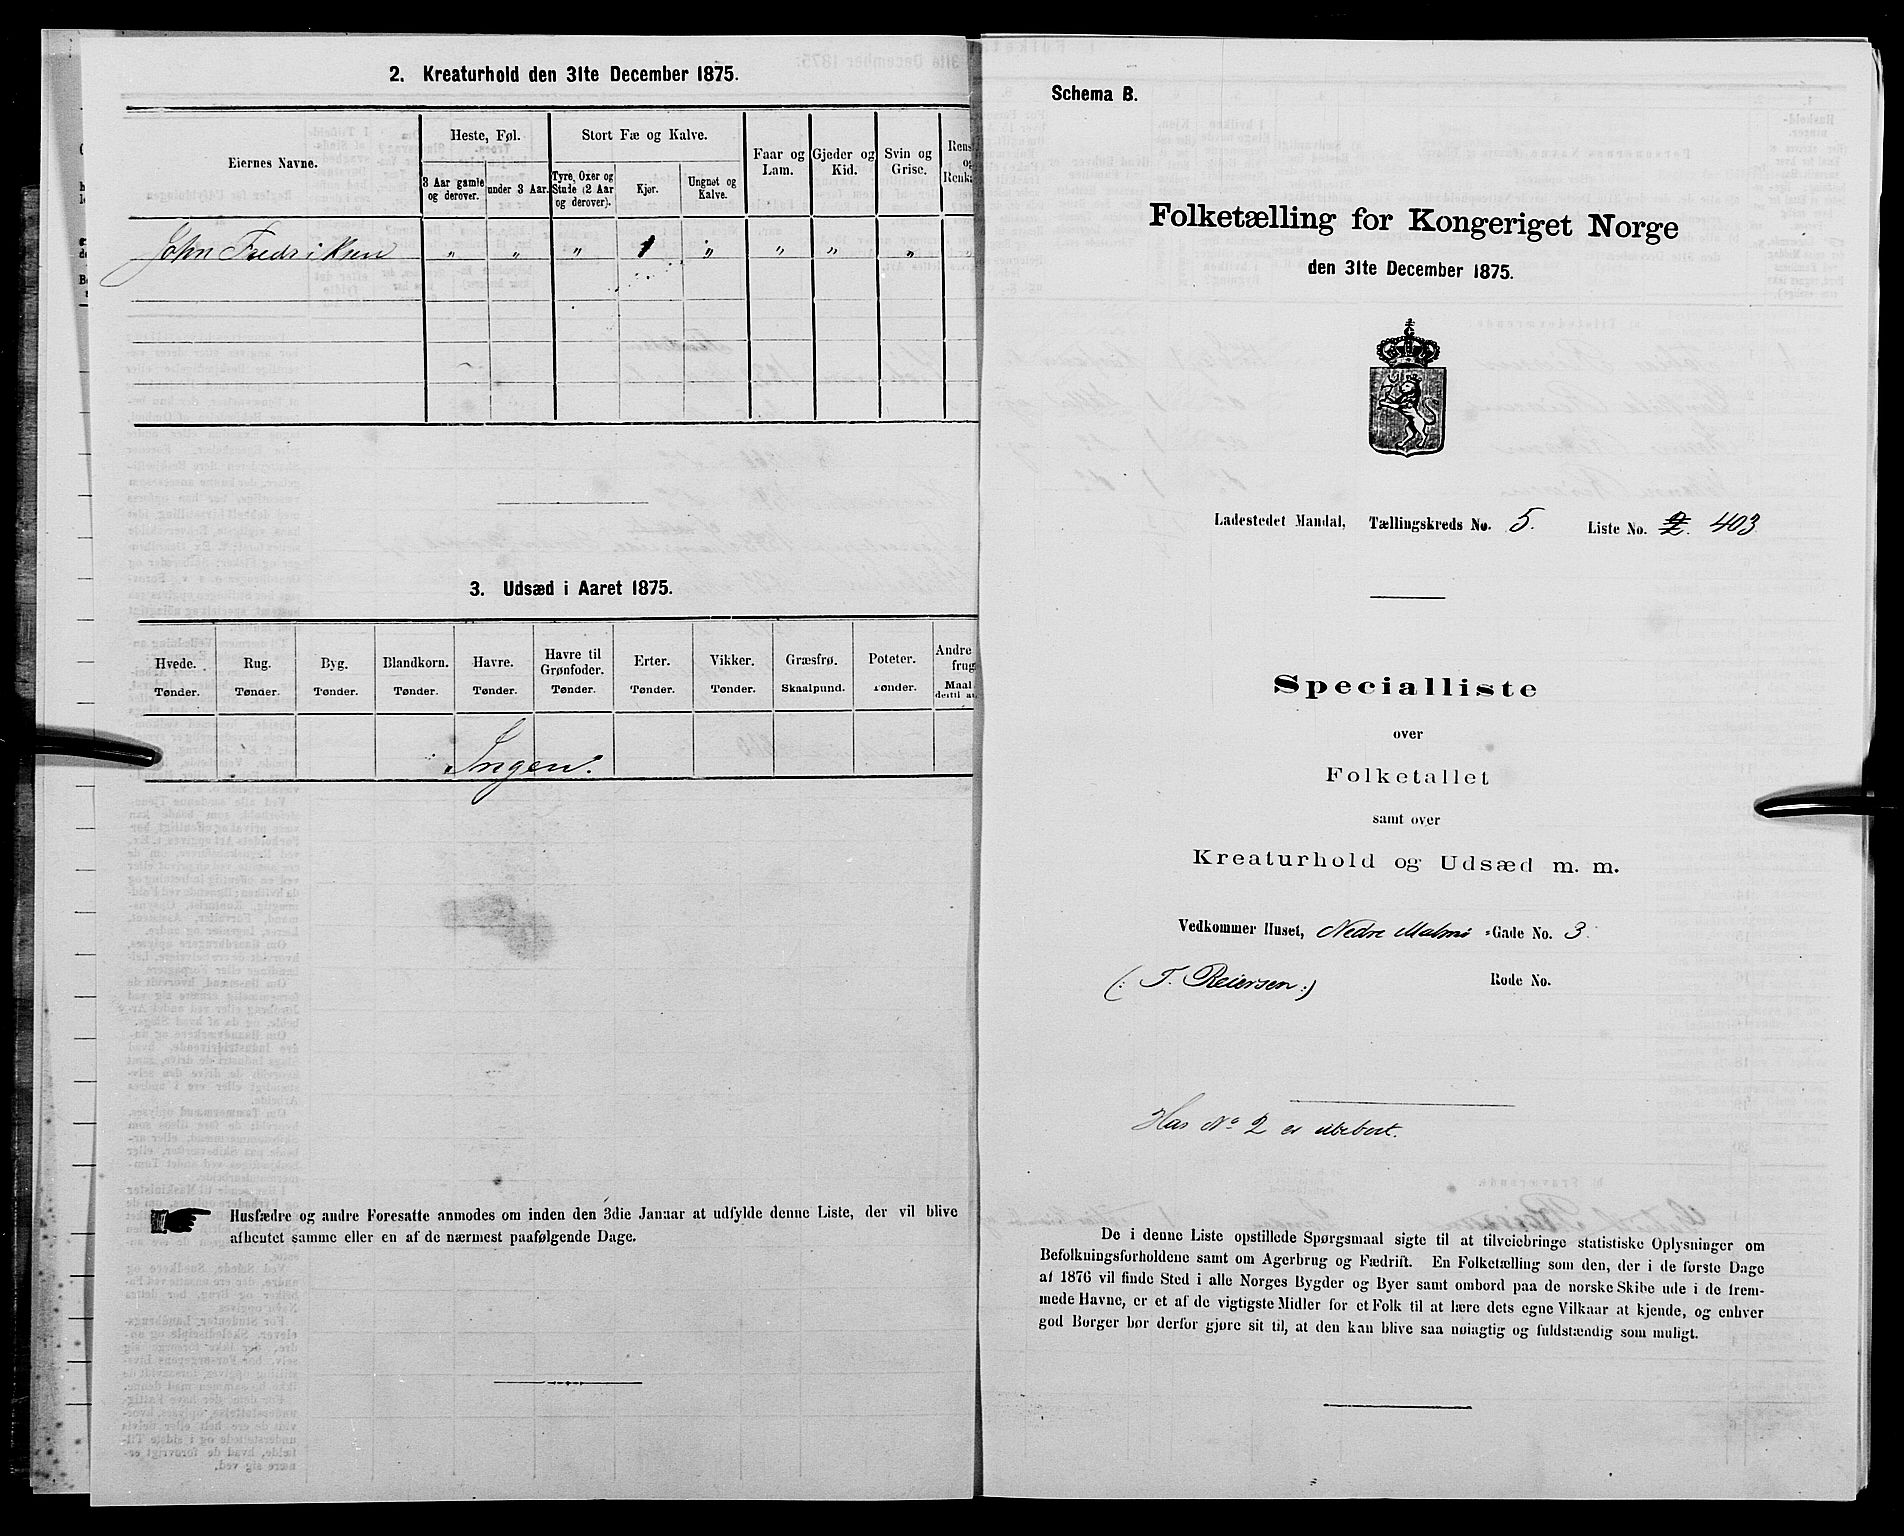 2. Kreaturhold den 31te December 1875.
Eiernes Navne.
Heste, Føl.
Stort Fæ og Kalve.
Faar og Lam.
Gjeder og Kid.
Svin og Grise.
3 Aar gamle og derover.
under 3 Aar.
Tyre, Oxer og Stude (2 Aar og derover).
Kjør.
Ungnøt og Kalve.
John Fredriksen " " " 1 " " " " "
3. Udsæd i Aaret 1875.
Hvede. Tønder.
Rug. Tønder.
Byg. Tønder.
Blandkorn. Tønder.
Havre. Tønder.
Havre til Grønfoder. Tønder.
Erter. Tønder.
Vikker. Tønder.
Græsfrø. Skaalpund.
Poteter. Tønder.
Andre
Maal
Ingen.
Husfædre og andre Foresatte anmodes om inden den 3die Januar at udfylde denne Liste, der vil blive
afhentet samme eller en af de nærmest paafølgende Dage.
Schema B.
Folketælling for Kongeriget Norge
den 31te December 1875.
Ladestedet Mandal, Tællingskreds No. 5. Liste No. 2. 403
Specialliste
over
Folketallet
samt over
Kreaturhold og Udsæd m. m.
Vedkommer Huset, Nedre Malmø -Gade No. 3.
(: T. Reiersen :) Rode No.
Hus No 2 er ubebort.
De i denne Liste opstillede Spørgsmaal sigte til at tilveiebringe statistiske Oplysninger om
Befolkningsforholdene samt om Agerbrug og Fædrift. En Folketælling som den, der i de første Dage
af 1876 vil finde Sted i alle Norges Bygder og Byer samt ombord paa de norske Skibe ude i de frem-
mede Havne, er et af de vigtigste Midler for et Folk til at lære dets egne Vilkaar at kjende, og enhver
god Borger bør derfor gjøre sit til, at den kan blive saa nøiagtig og fuldstændig som muligt.